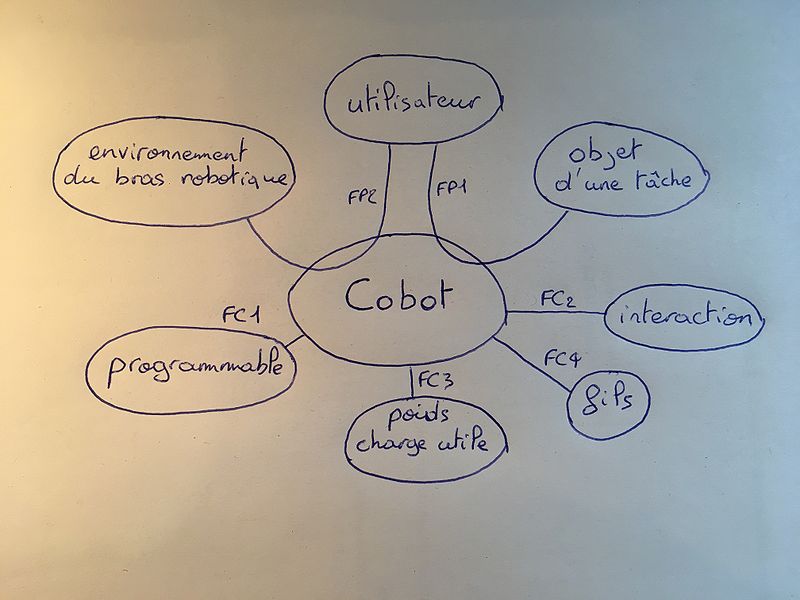 utilisateur
environnement
du bras robotique
objet
d'une tâche
FP2
FP1
Cobot
FC2
interaction
FC1
programmable
FC4
fils
FC3
poids
charge utile